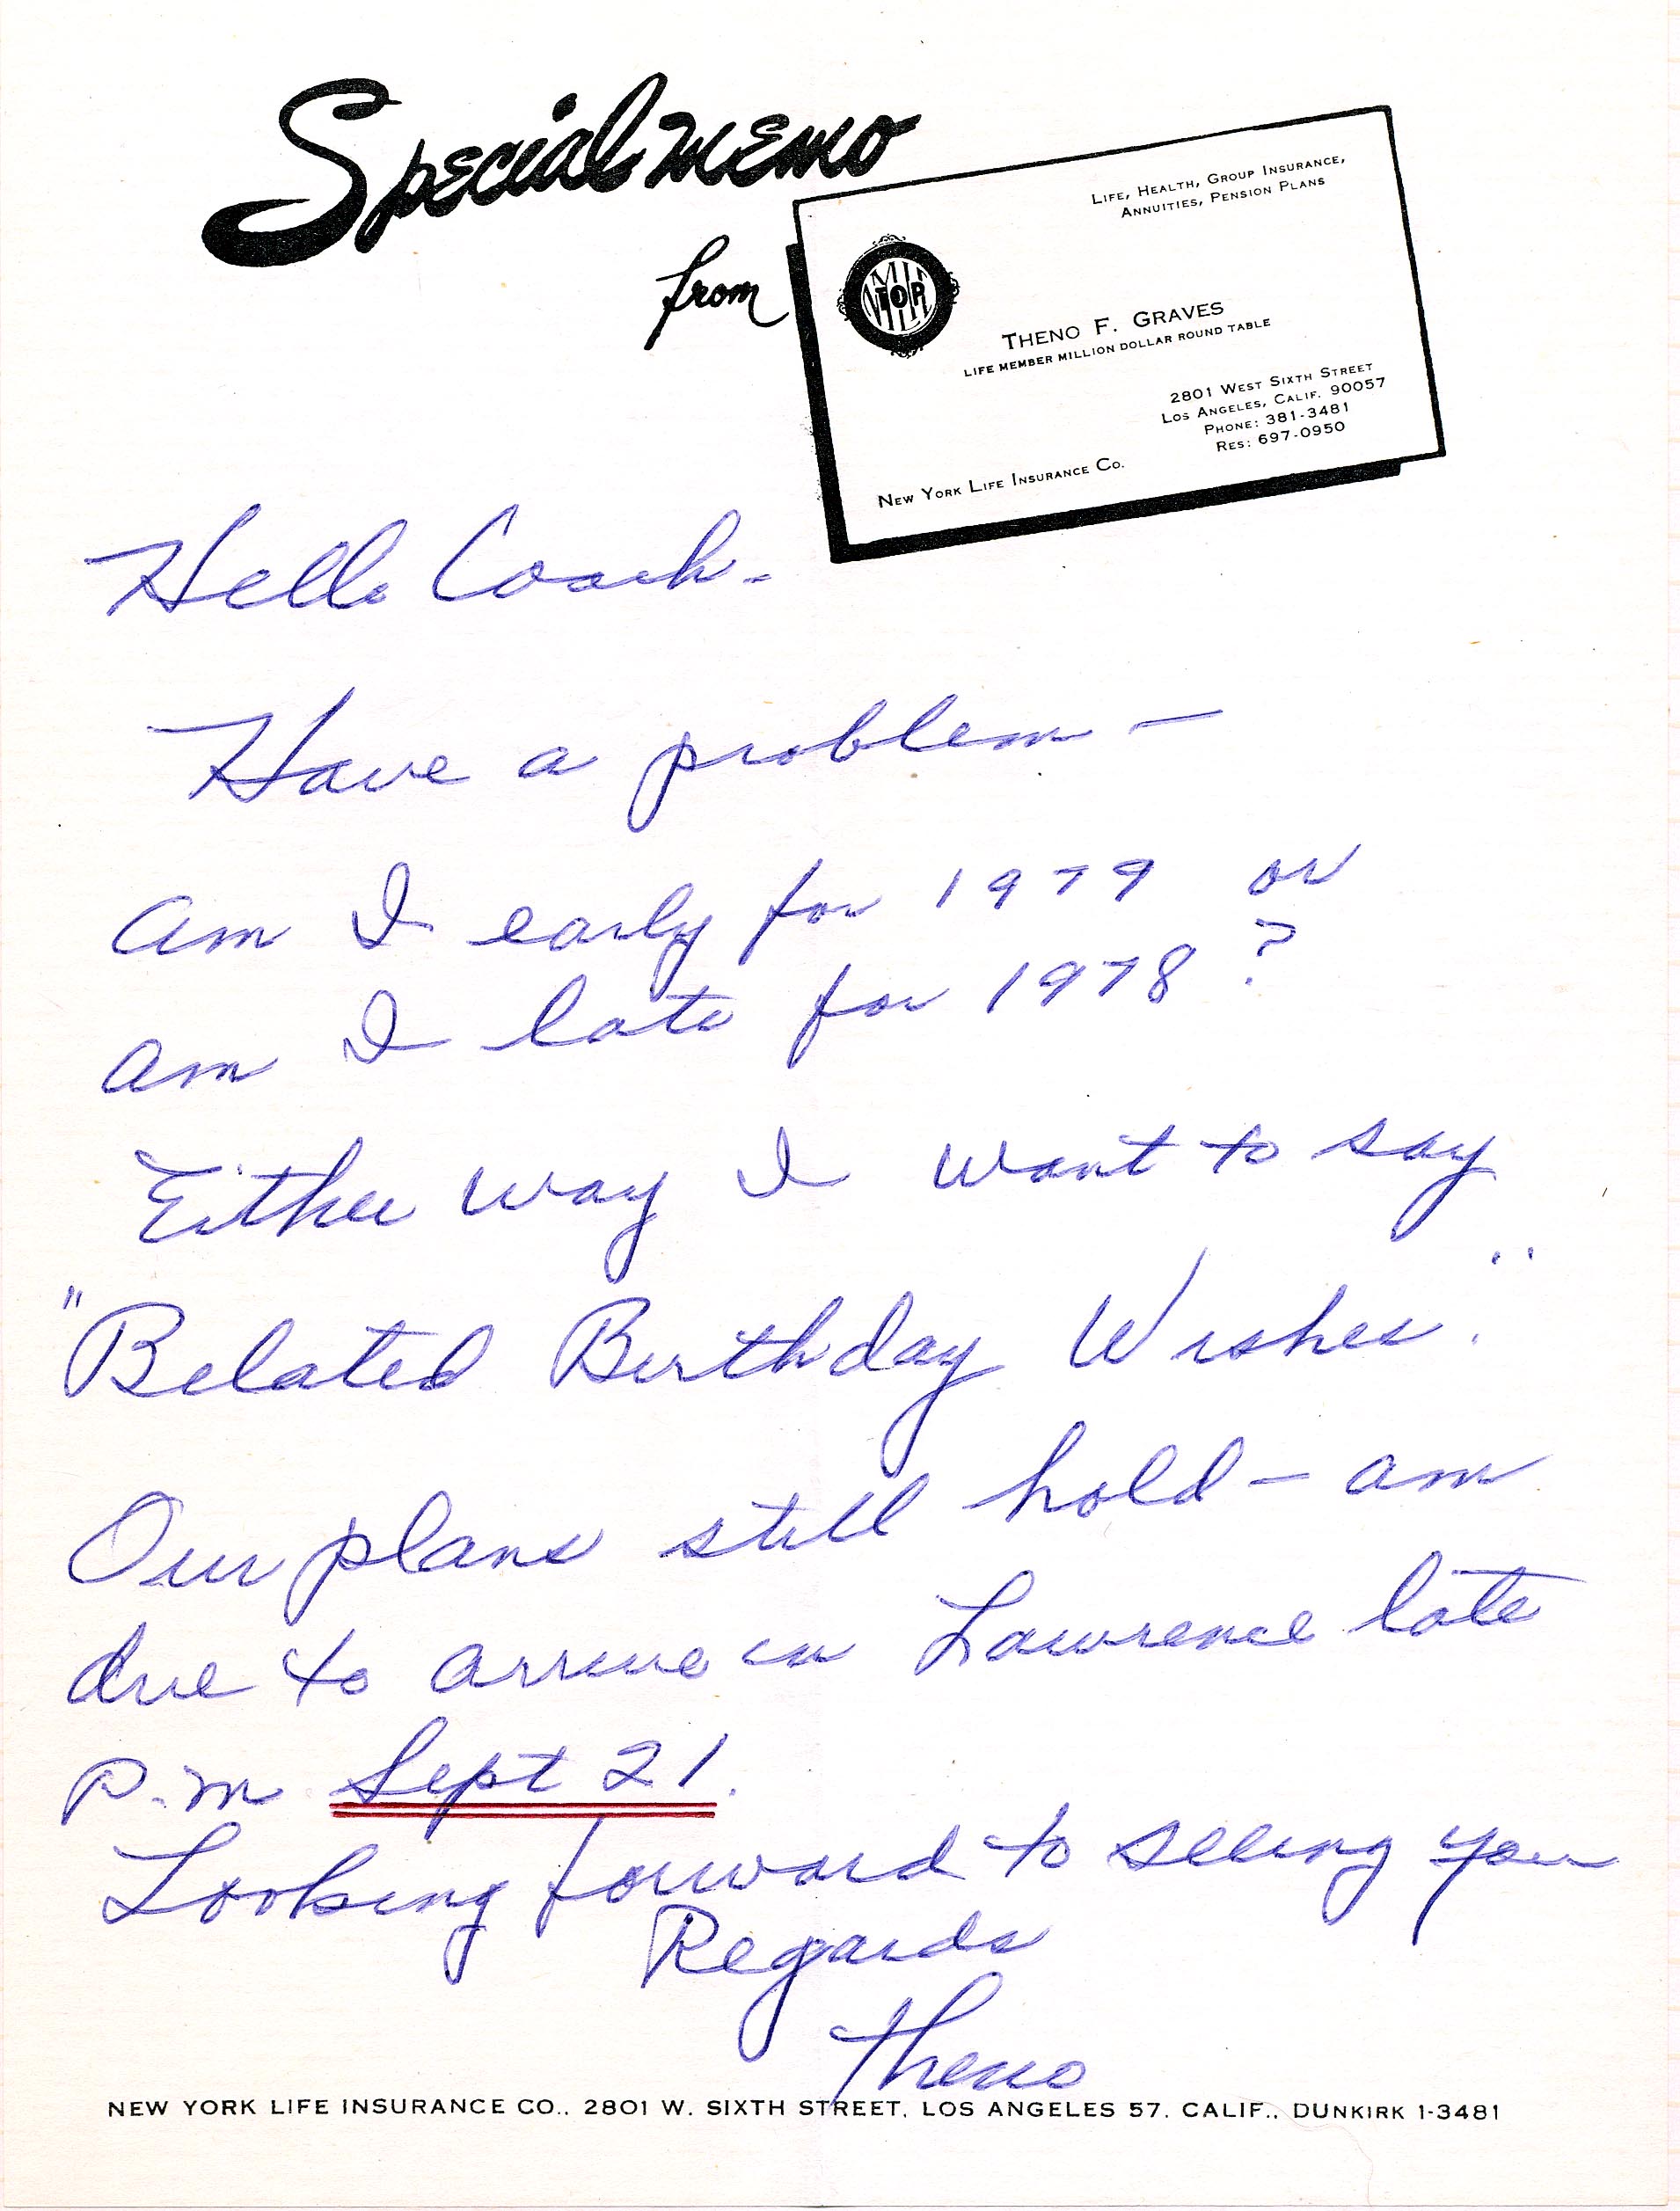 Special memo
from
LIFE, HEALTH, GROUP INSURANCE,
ANNUITIES, PENSION PLANS
TOP
THENO F. GRAVES
LIFE MEMBER MILLION DOLLAR ROUND TABLE
2801 WEST SIXTH STREET
LOS ANGELES, CALIF. 90057
PHONE: 381-3481
RES: 697-0950
NEW YORK LIFE INSURANCE CO.
Hello Coach -
Have a problem —
am I early for 1979 or
am I late for 1978 ?
Either way I want to say
"Belated Birthday Wishes."
Our plans still hold — am
due to arrive in Lawrence late
P.m Sept 21.
Looking forward to seeing you
Regards
Theno
NEW YORK LIFE INSURANCE CO., 2801 W. SIXTH STREET, LOS ANGELES 57, CALIF., DUNKIRK 1-3481